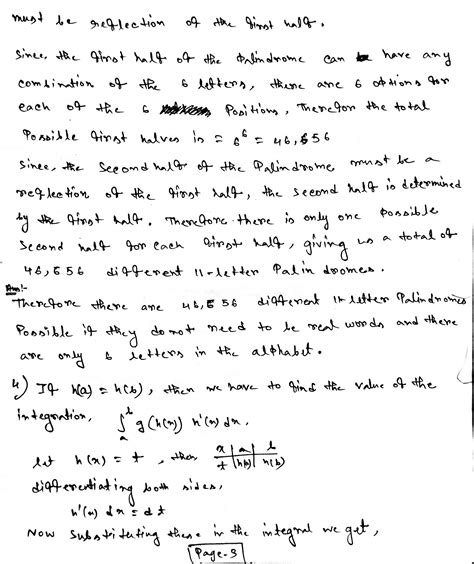 must be reflection of the first half.
Since, the first half of the Palindrome can have any
combination of the 6 letters, there are 6 options for
each of the 6 Positions, Therefore the total
Possible first halves is = 6^6 = 46,656
Since, the Second half of the Palindrome must be a
reflection of the first half, the second half is determined
by the first half. Therefore there is only one Possible
Second half for each first half, giving us a total of
46,656 different 11-letter Palindromes.
Ans:-
Therefore there are 46,656 different 11-letter Palindromes
Possible if they do not need to be real words and there
are only 6 letters in the alphabet.
4) If h(a) = h(b), then we have to find the value of the
integration, ∫_a^b g(h(x)) h'(x) dx.
let h(x) = t, then x | a | b
t | h(a) | h(b)
differentiating both sides,
h'(x) dx = dt
Now Substituting these in the integral we get,
Page-3